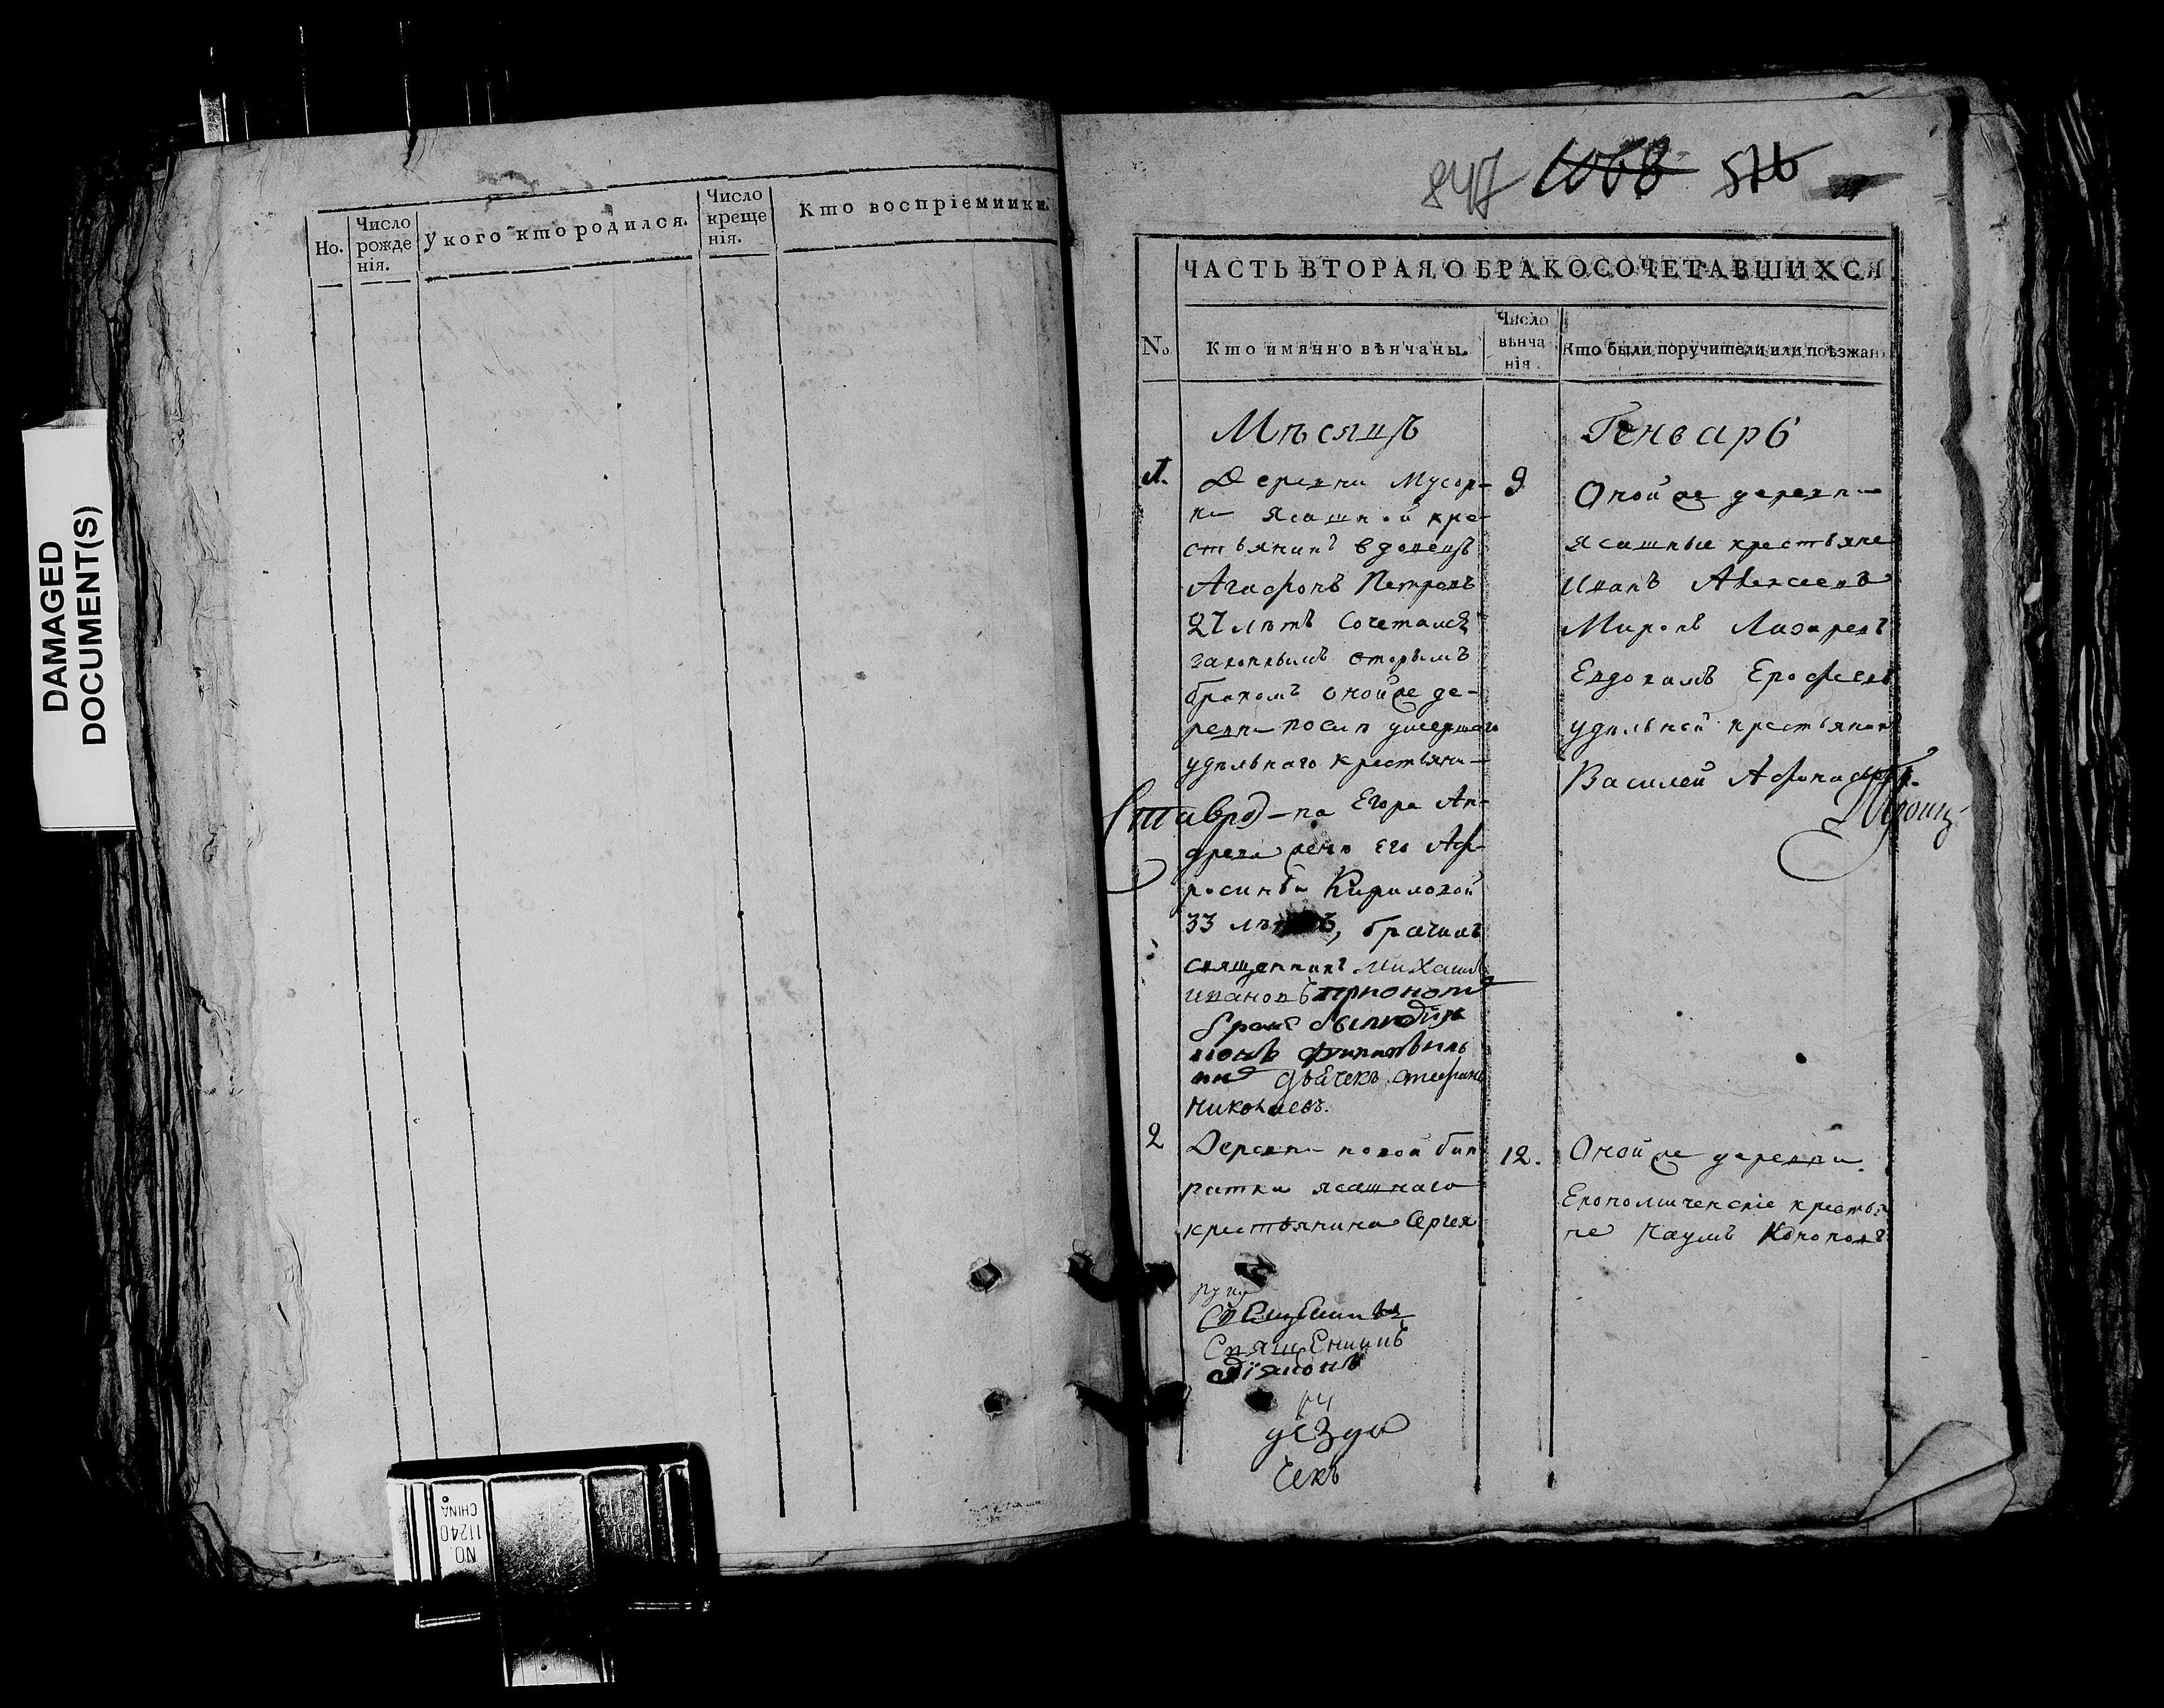 DAMAGED
DOCUMENT(S)
Но.
Число
рожде
нія.
У кого кто родился.
Число
креще
нія.
Кто воспріемники.
847 1068 576
ЧАСТЬ ВТОРАЯ О БРАКОСОЧЕТАВШИХСЯ
No
Кто имянно вѣнчаны.
Число
вѣнча
нія.
Кто были поручители или поѣзжан
Мѣсяцъ
Генварь
1.
Деревни Мусор-
ки ясашной кре-
стьянинъ вдовецъ
Агафонъ Петровъ
27 лѣтъ сочетался
законнымъ вторымъ
бракомъ оной же де-
ревни после умершаго
удѣльнаго крестьяни-
Ставро
на Егора Ан-
дреева жена его Аф-
росинья Кириловой
33 лѣтъ, брачилъ
священникъ Михаилъ
Ивановъ при ономъ
бракѣ были дія
конъ Филипъ
дьячекъ Стефанъ
Николаевъ.
9
Оной же деревни
ясашные крестьяне
Иванъ Алексеевъ
Миронъ Лазаревъ
Евдокимъ Ерофеевъ
удѣльной крестьянинъ
Василей Афонасьевъ.
Троиц
2
Деревни новой Бин
ратки ясашнаго
крестьянина Сергея
12.
Оной же деревни
Економическіе крестья
не Наумъ Кононовъ
Священникъ
діяконъ
уезда
чекъ
NO.
11240
CHINA